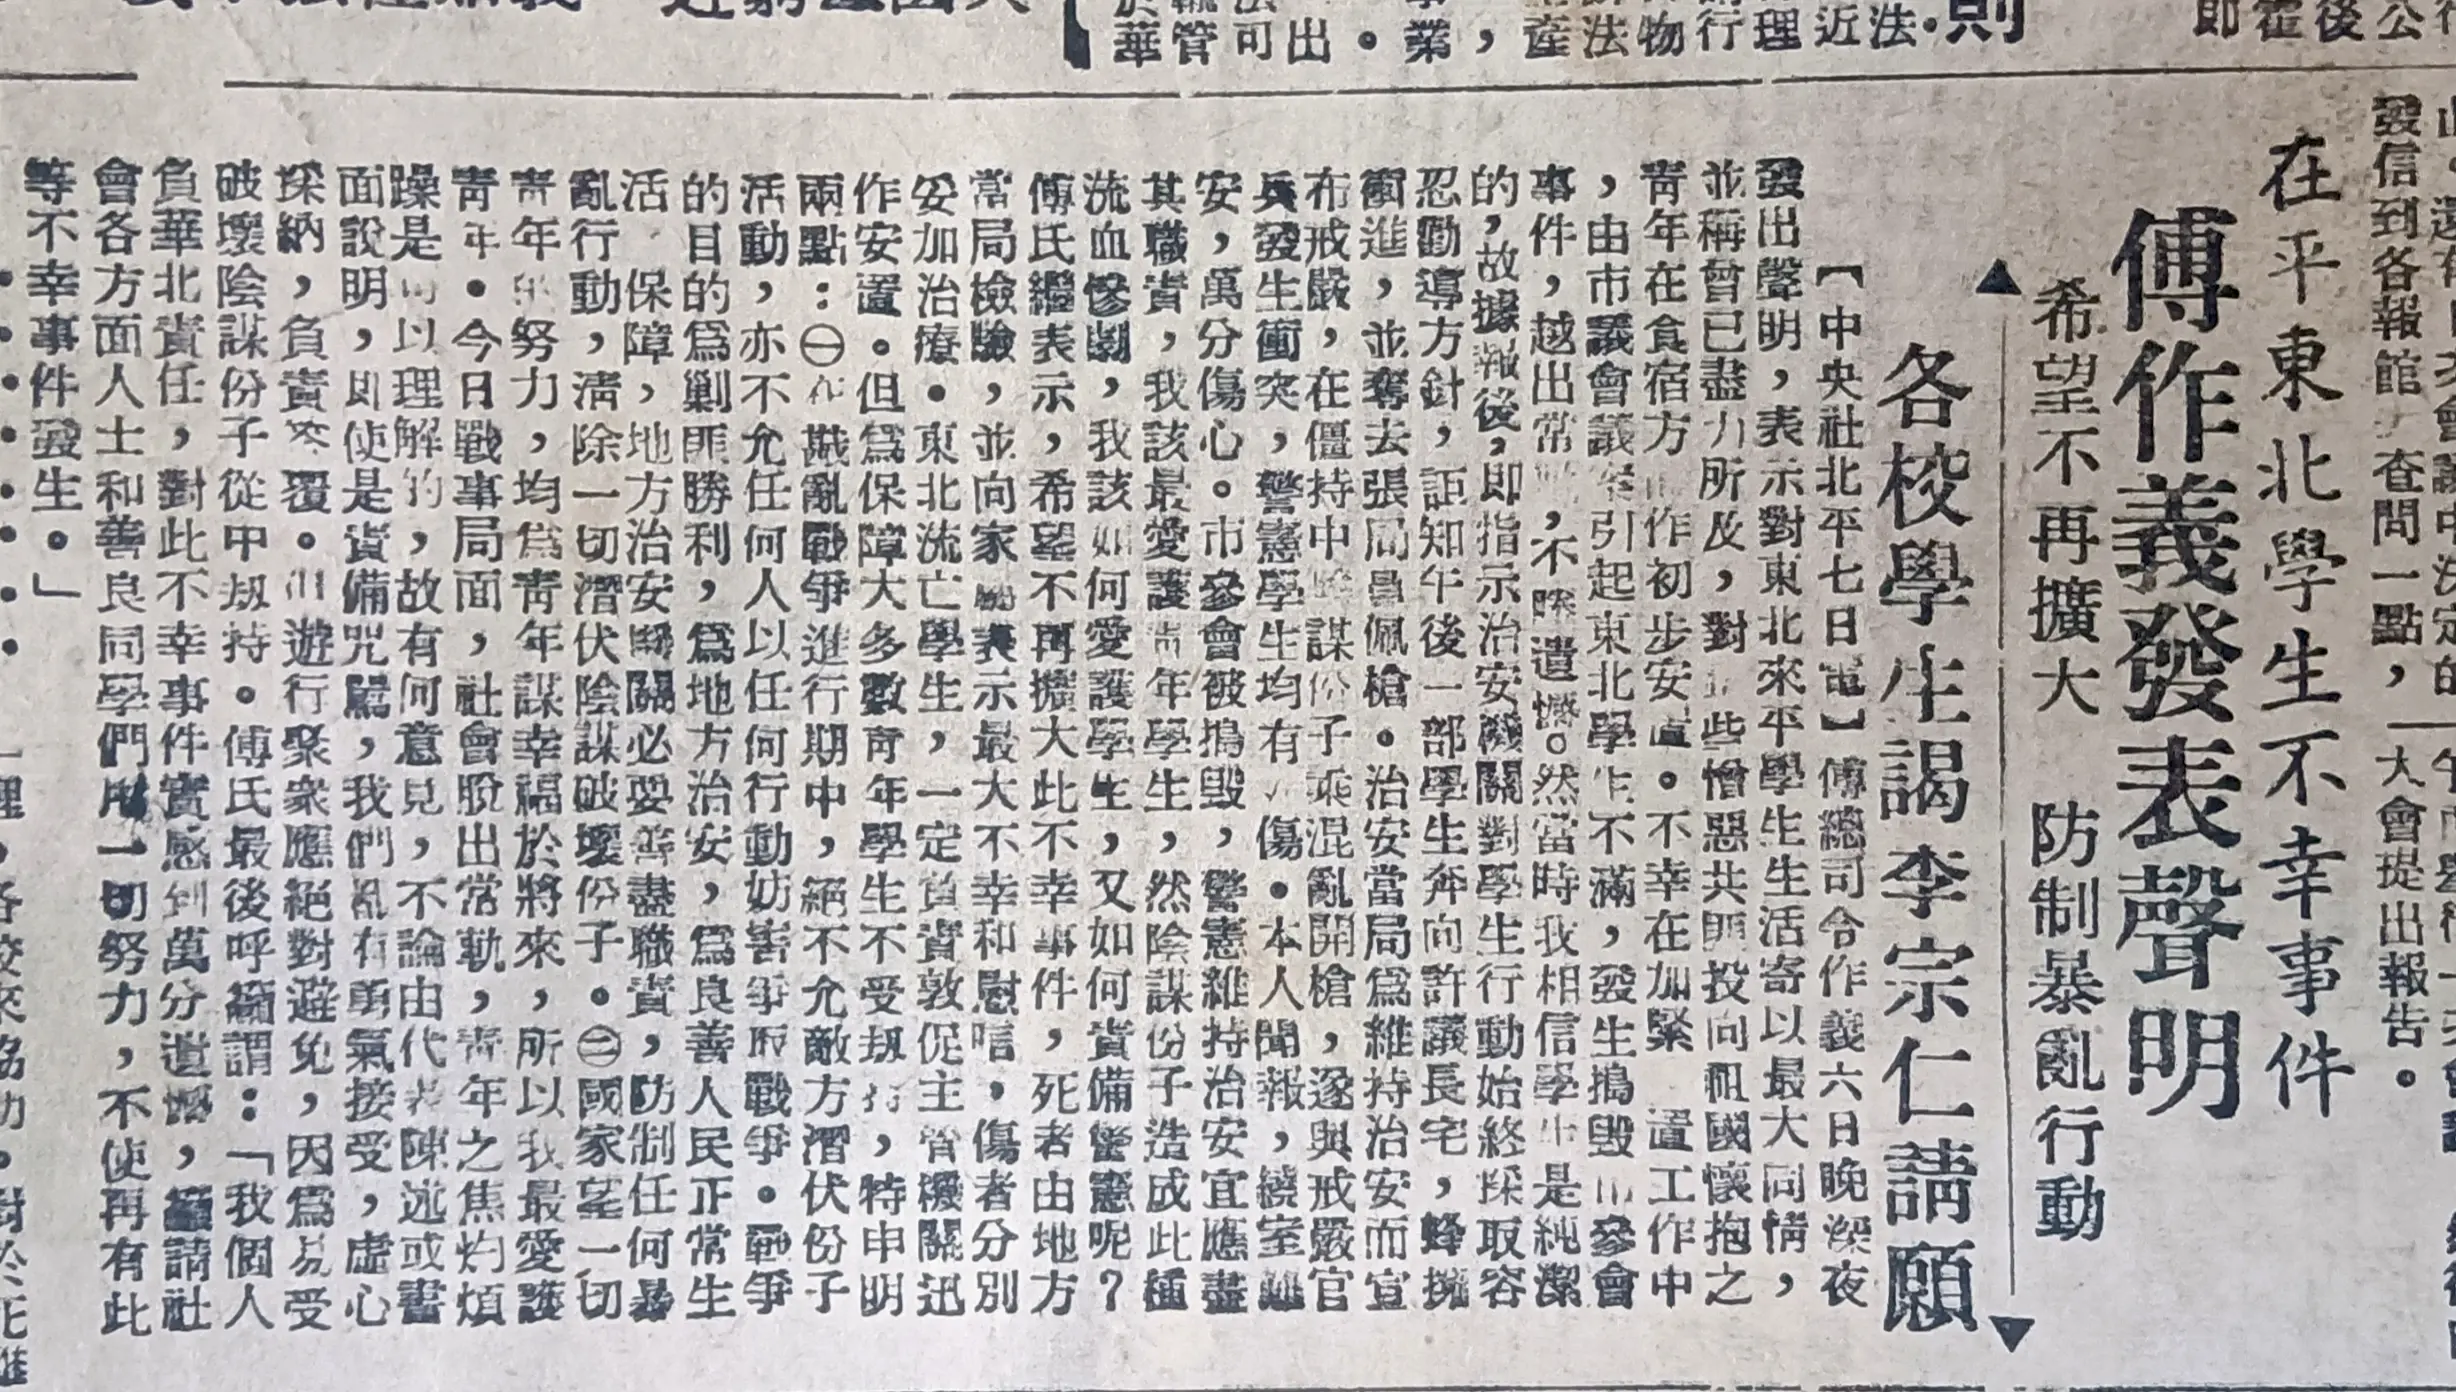 在平東北學生不幸事件
傅作義發表聲明
希望不再擴大 防制暴亂行動
各校學生謁李宗仁請願
【中央社北平七日電】傅總司令作義六日晚深夜
發出聲明，表示對東北來平學生生活寄以最大同情，
並稱曾已盡力所及，對 些憎惡共匪投向祖國懷抱之
青年在食宿方 作初步安置。不幸在加緊 置工作中
，由市議會議案引起東北學生不滿，發生搗毀市參會
事件，越出常 ，不勝遺憾。然當時我相信學生是純潔
的，故據報後，即指示治安機關對學生行動始終採取容
忍勸導方針，詎知午後一部學生奔向許議長宅，蜂擁
衝進，並奪去張局員佩槍。治安當局為維持治安而宣
布戒嚴，在僵持中 謀份子乘混亂開槍，遂與戒嚴官
兵發生衝突，警憲學生均有 傷。本人聞報，繞室
安，萬分傷心。市參會被搗毀，警憲維持治安宜應盡
其職責，我該最愛護青年學生，然陰謀份子造成此種
流血慘劇，我該如何愛護學生，又如何責備警憲呢？
傅氏繼表示，希望不再擴大此不幸事件，死者由地方
當局檢驗，並向家屬表示最大不幸和慰唁，傷者分別
妥加治療。東北流亡學生，一定負責敦促主管機關迅
作安置。但為保障大多數青年學生不受劫持，特申明
兩點：㊀在戡亂戰爭進行期中，絕不允敵方潛伏份子
活動，亦不允任何人以任何行動妨害爭取戰爭。戰爭
的目的為剿匪勝利，為地方治安，為良善人民正常生
活 保障，地方治安機關必要善盡職責，防制任何暴
亂行動，清除一切潛伏陰謀破壞份子。㊁國家望一切
青年 努力，均為青年謀幸福於將來，所以我最愛護
青年。今日戰事局面，社會脫出常軌，青年之焦灼煩
躁是可以理解的，故有何意見，不論由代表陳述或書
面說明，即使是責備咒罵，我們亂有勇氣接受，虛心
採納，負責答覆。 遊行聚眾應絕對避免，因為易受
破壞陰謀份子從中劫持。傅氏最後呼籲謂：「我個人
負華北責任，對此不幸事件實感到萬分遺憾，籲請社
會各方面人士和善良同學們用一切努力，不使再有此
等不幸事件發生。」